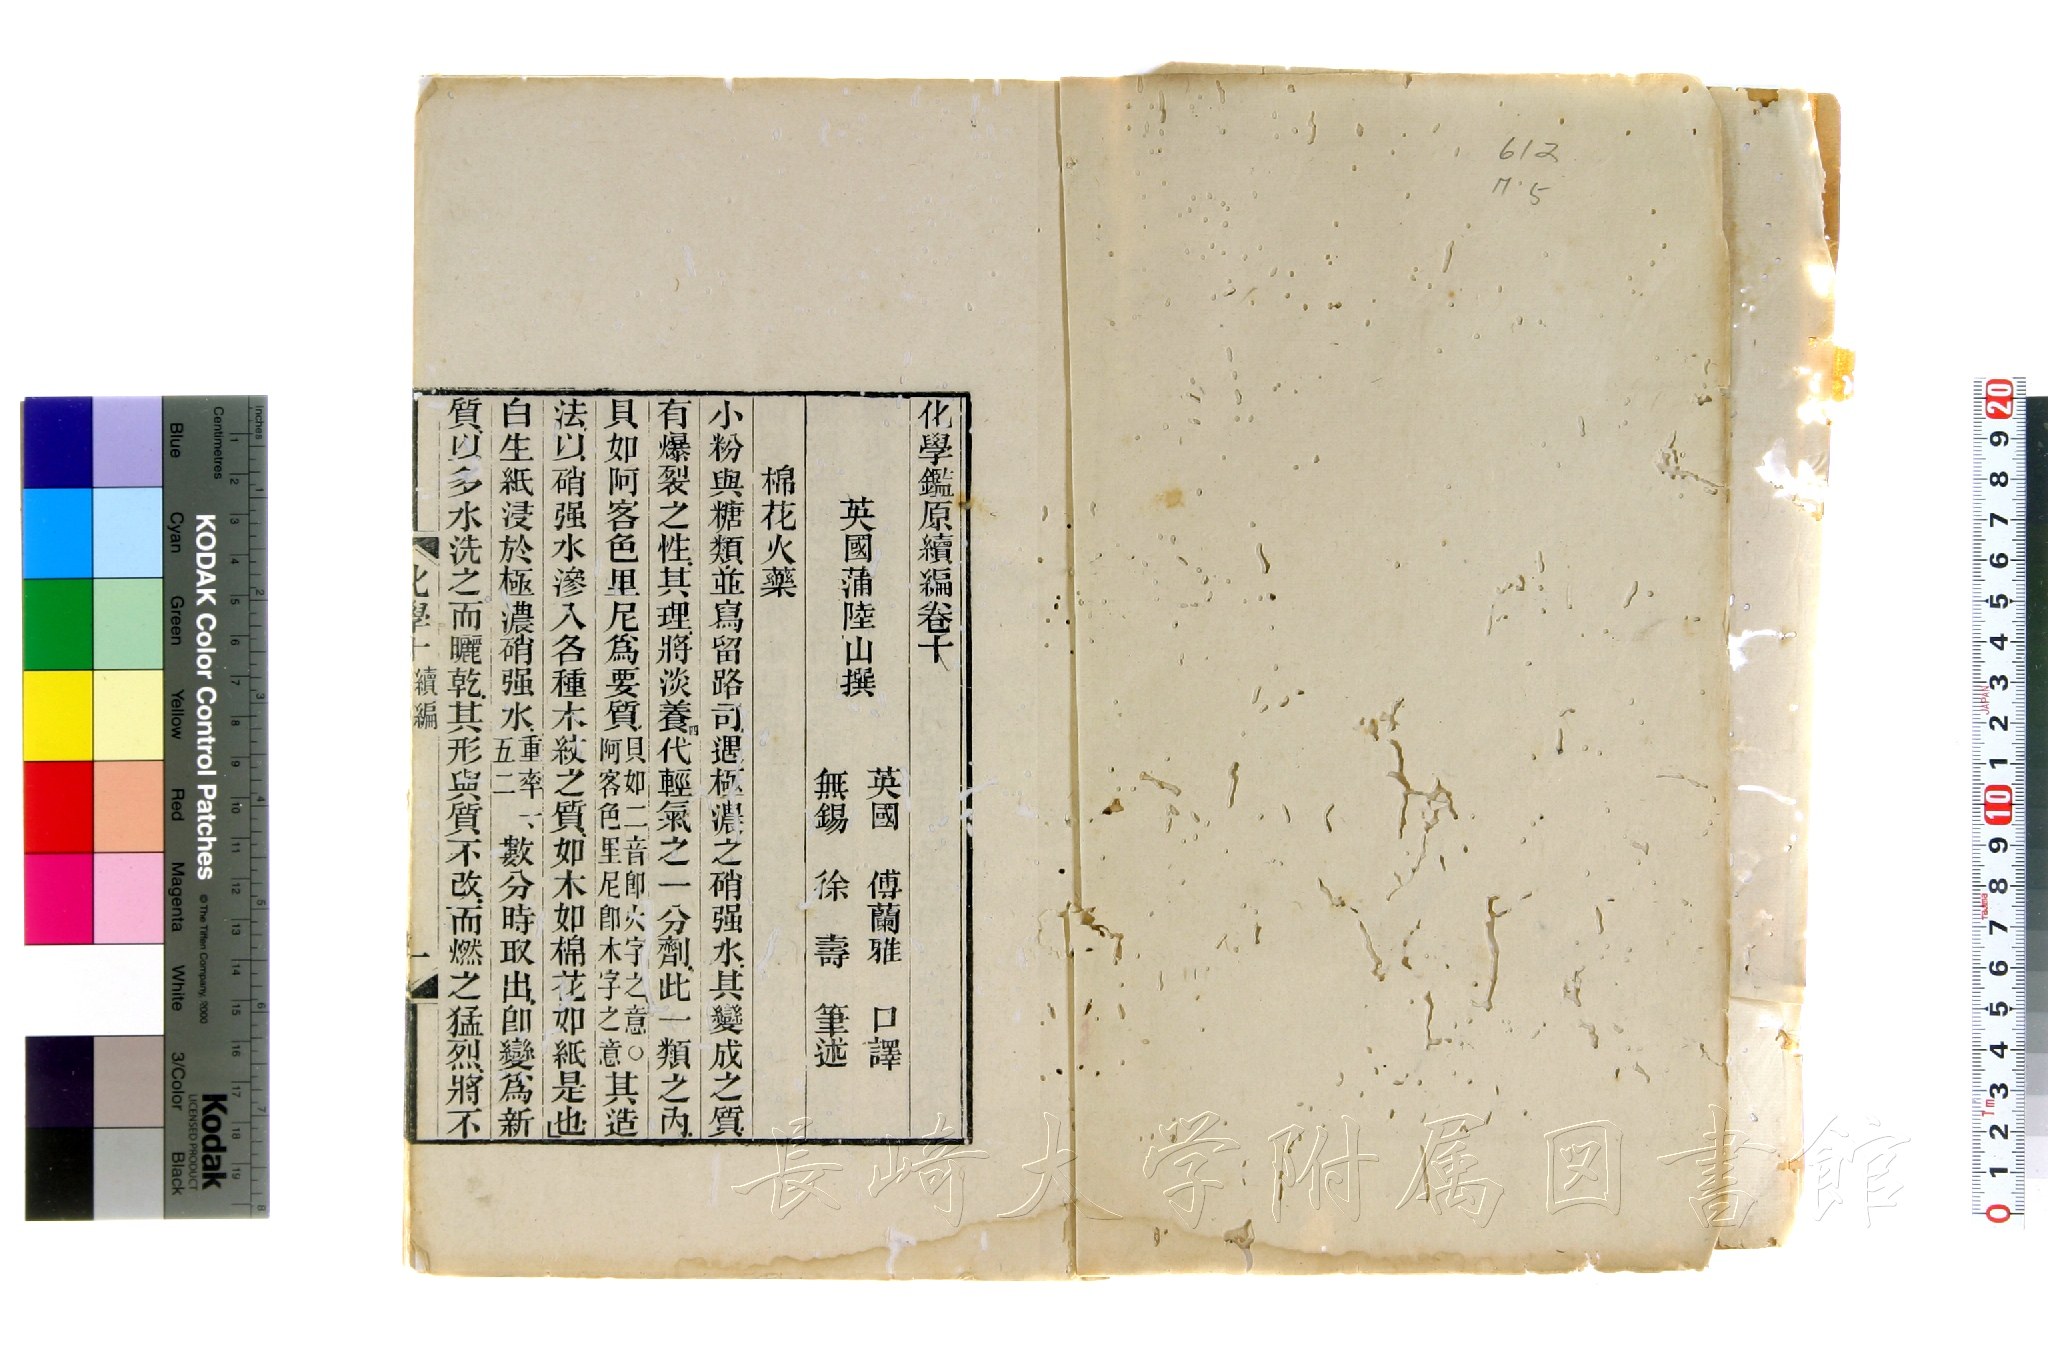 612
П.5
化學鑑原續編卷十
英國蒲陸山撰
英國 傅蘭雅 口譯
無錫 徐壽 筆述
棉花火藥
小粉與糖類並寫留路司遇極濃之硝强水其變成之質
有爆裂之性其理將淡養四代輕氣之一分劑此一類之內
貝如阿客色里尼爲要質貝如二音卽火字之意
阿客色里尼卽木字之意○其造
法以硝强水滲入各種木紋之質如木如棉花如紙是也
白生紙浸於極濃硝强水重率一、
五二數分時取出卽變爲新
質以多水洗之而曬乾其形與質不改而燃之猛烈將不
化學十 續編 一
長崎大学附属図書館
KODAK Color Control Patches
© The Tiffen Company, 2000
Kodak
LICENSED PRODUCT
Inches
Centimetres
Blue
Cyan
Green
Yellow
Red
Magenta
White
3/Color
Black